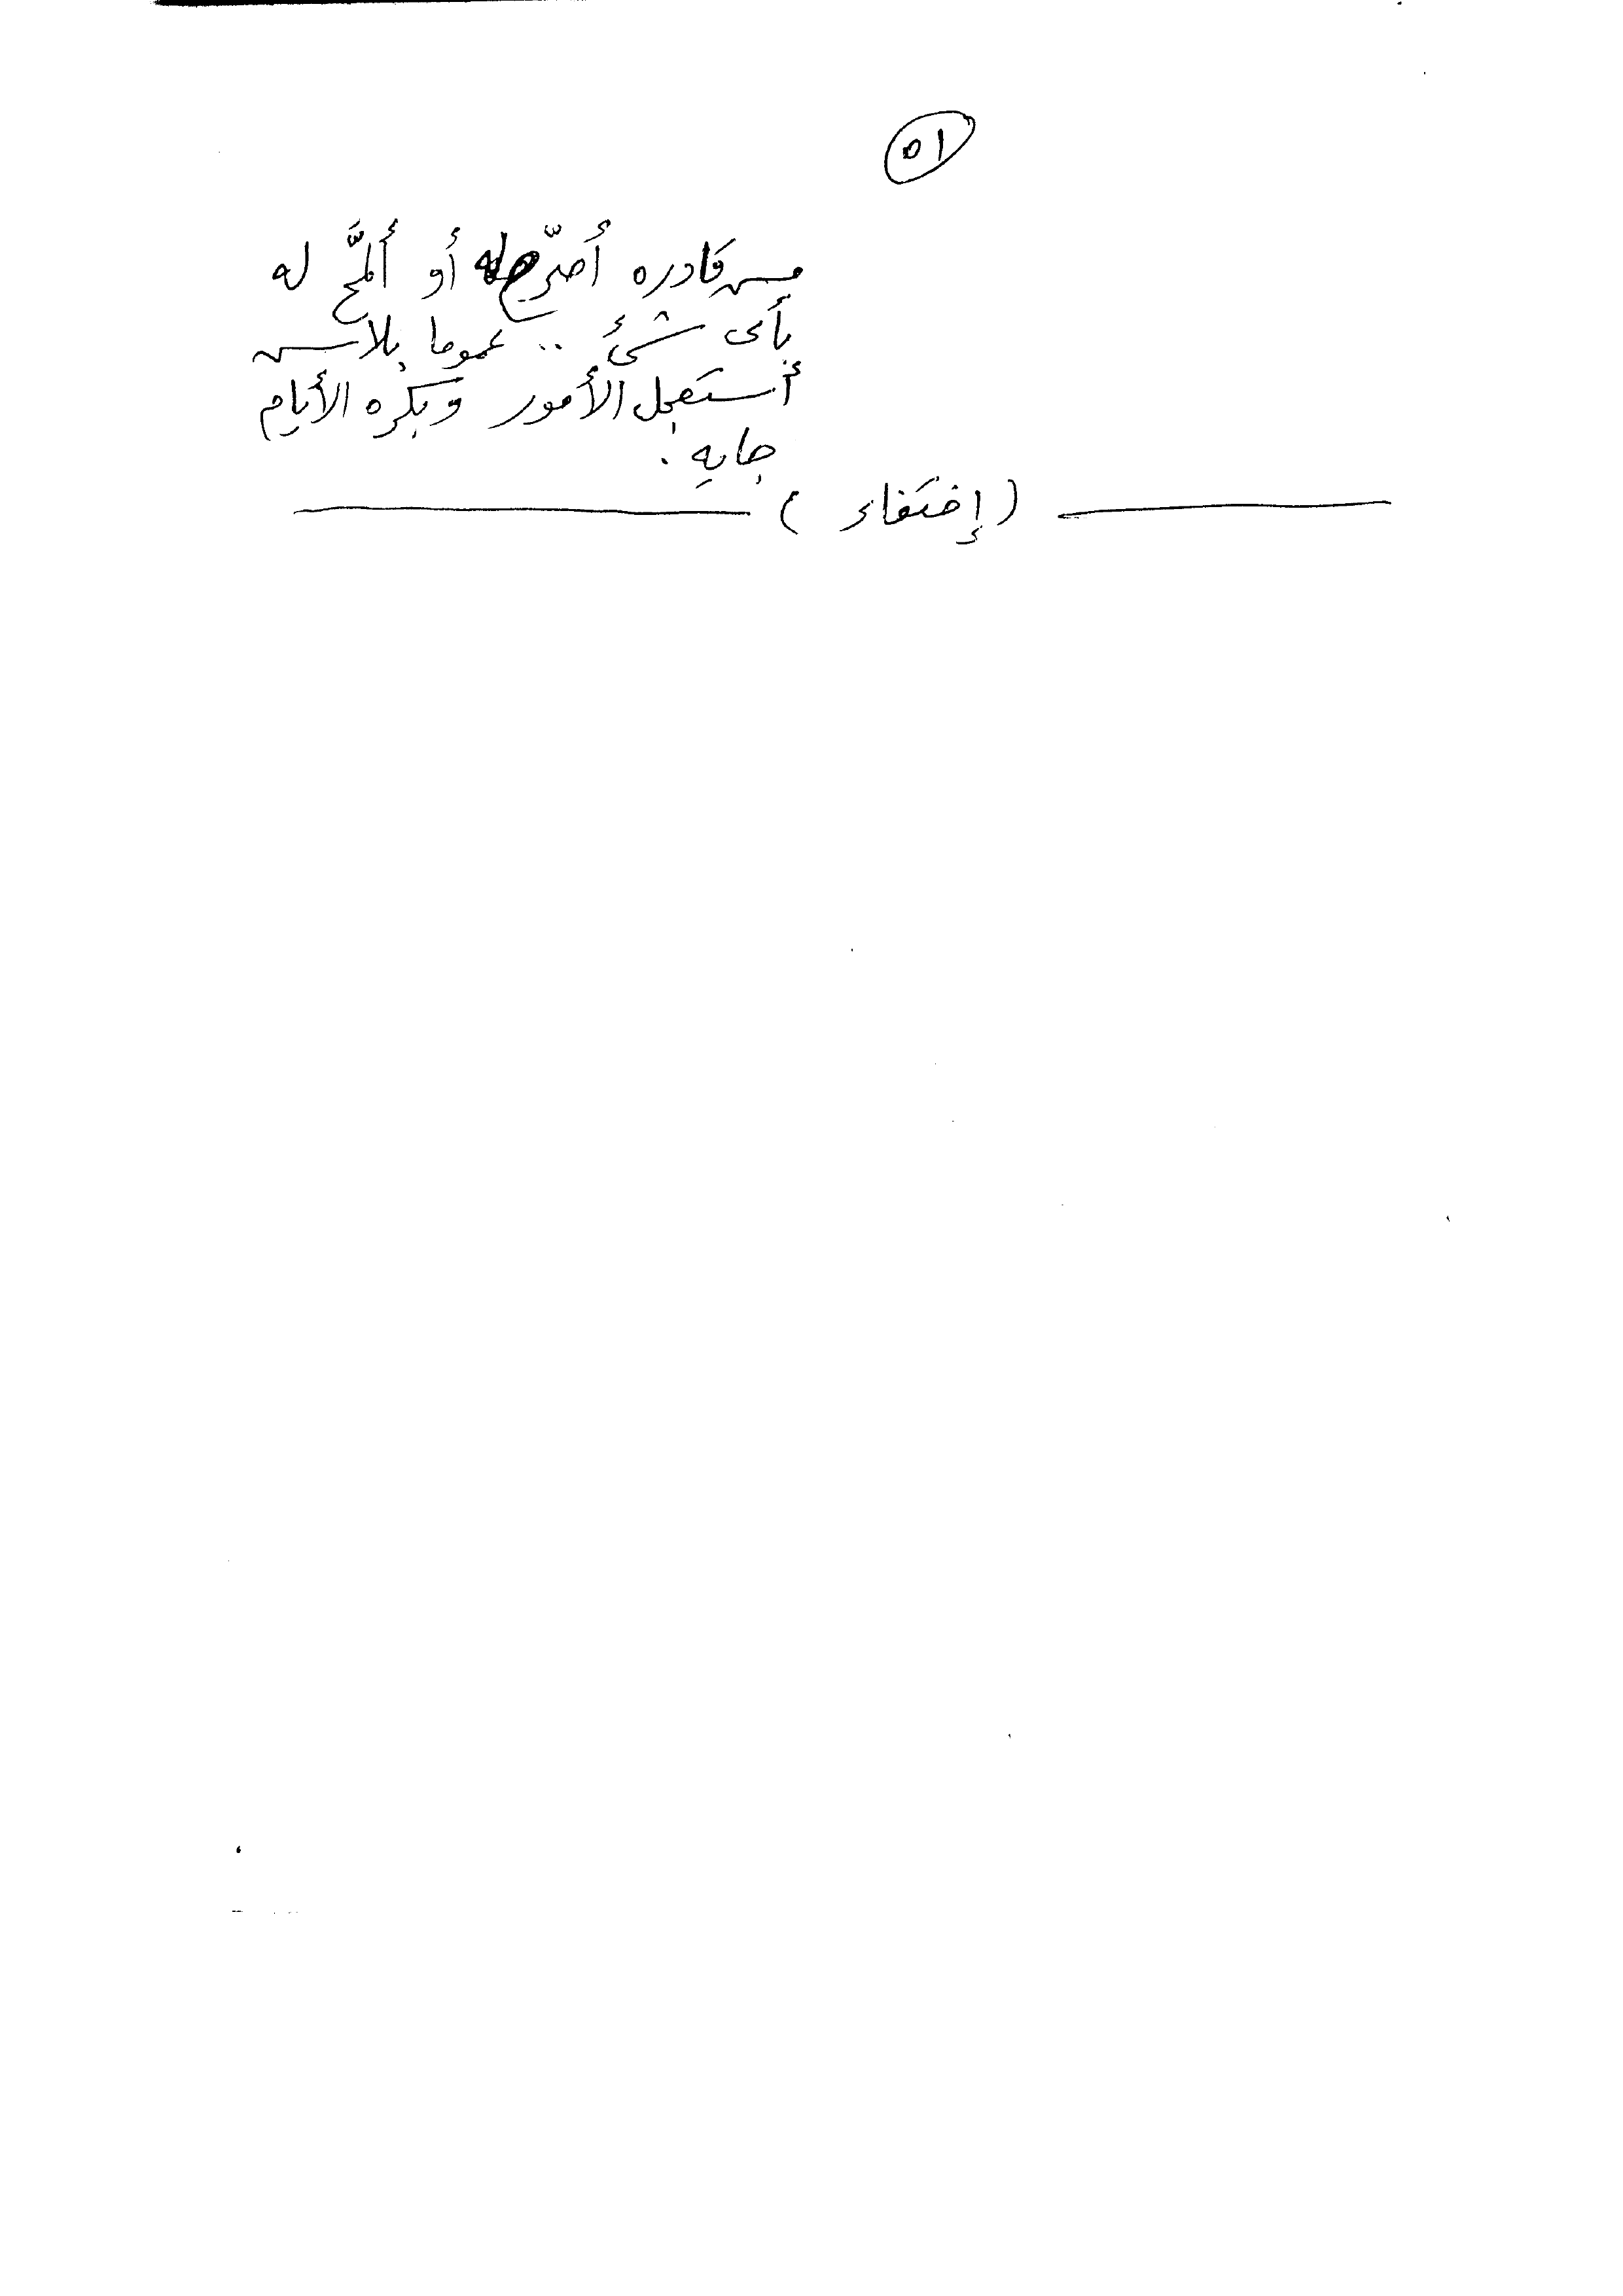 ٥١
مش قادره أصرّح له أو ألمَّح له
بأى شئ .. عموما بلاش
أستعجل الأمور وبكره الأيام
جايه .
( إختفاء )